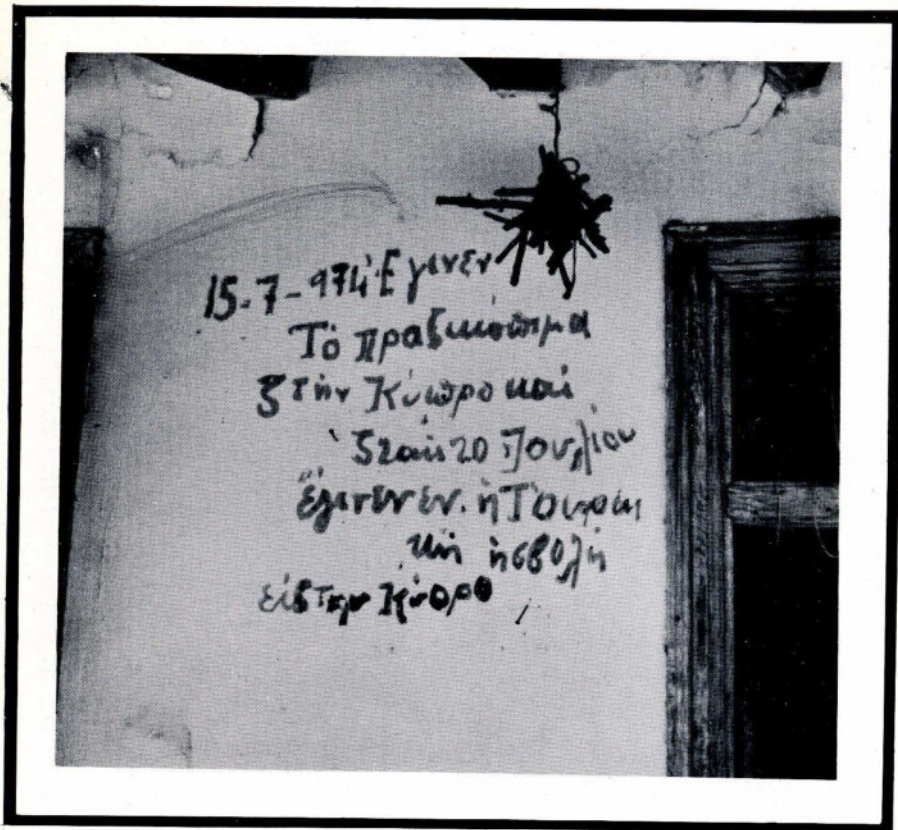 15-7-974 Έγινεν
Τό πραξικόπημα
Στήν Κύπρο καί
Σταίς 20 Ιουλίου
έγινεν ἡ Τουρκι
κή ησβολή
είς την Κύπρο